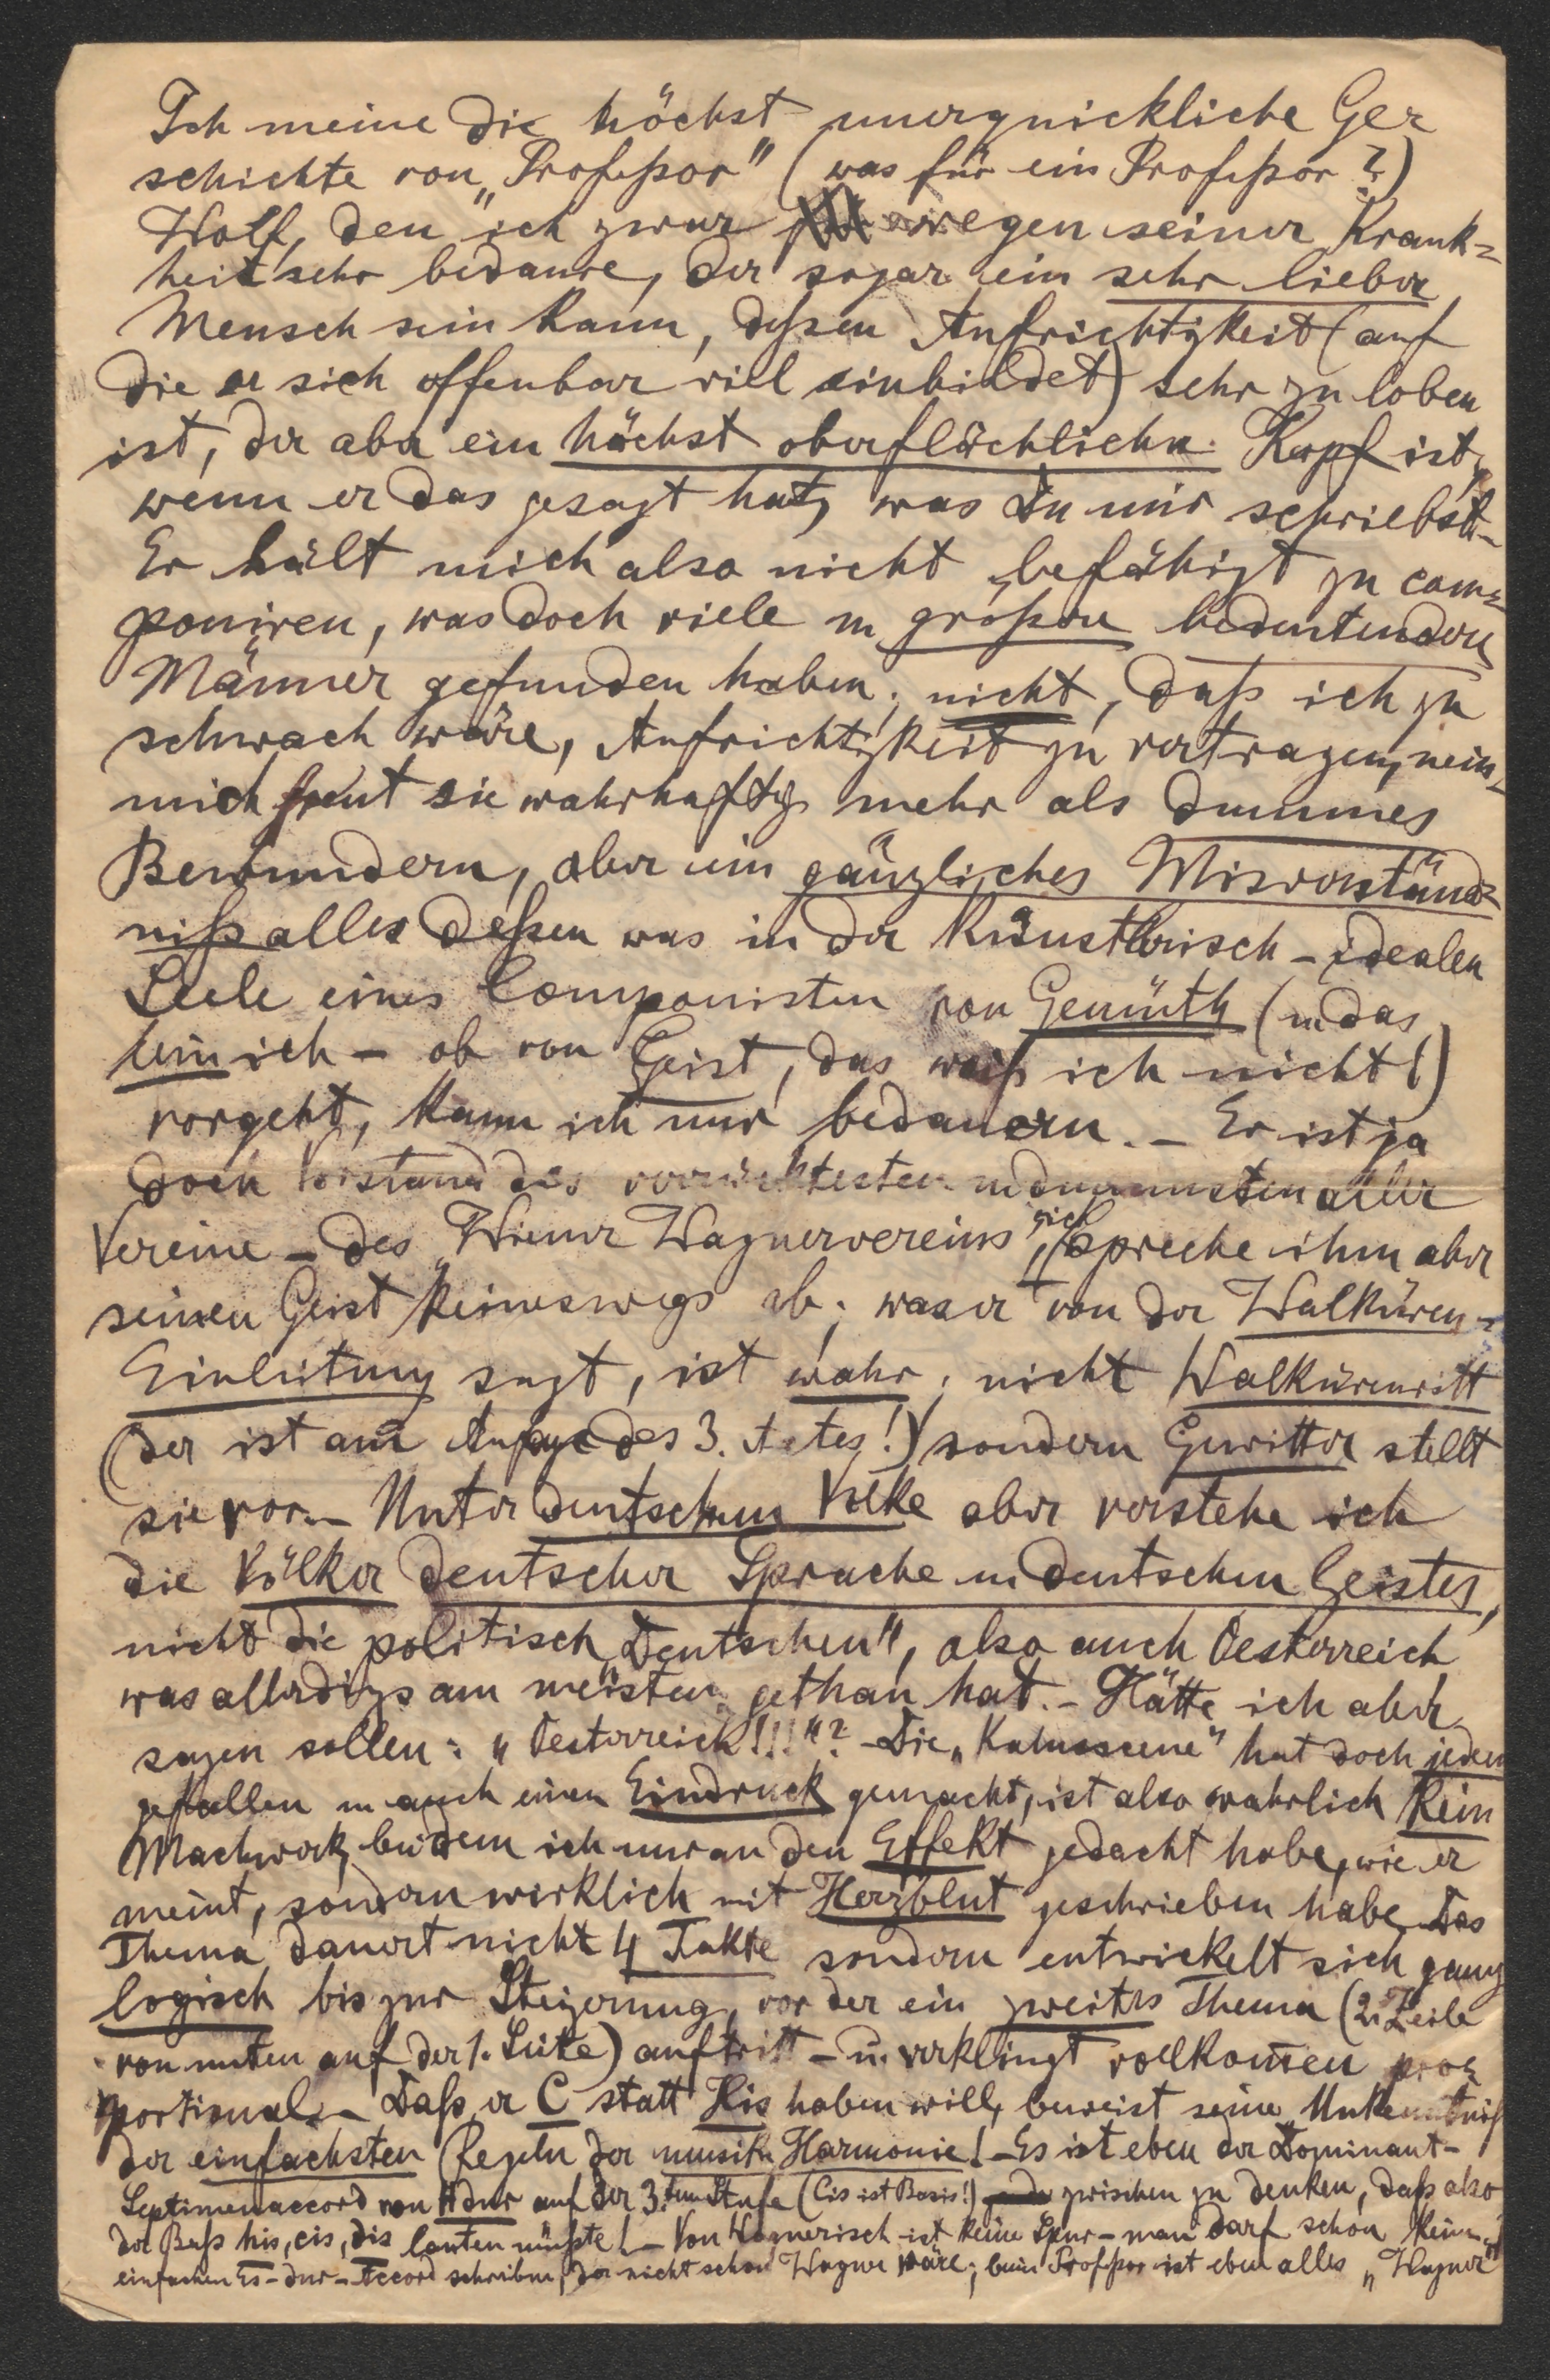 Ich meine die höchst unerquickliche Ge=
schichte von „Profeßor" (was für ein Profeßor?)
Wolf, den ich zwar wegen seiner Krank=
heit sehr bedaure, der sogar ein sehr lieber
Mensch sein kann, deßen Aufrichtigkeit (auf
die er sich offenbar viel einbildet) sehr zu loben
ist, der aber ein höchst oberflächlicher Kopf ist,
wenn er das gesagt hat, was Du mir schriebst.–
Er hält mich also nicht befähigt zu com=
poniren, was doch viele u größere bedeutendere
Männer gefunden haben; nicht, daß ich zu
schwach wäre, Aufrichtigkeit zu vertragen, nein,
mich freut sie wahrhaftig mehr als dummes
Bewundern, aber ein gänzliches Misverständ=
niß alles deßen was in der künstlerisch-idealen
Seele eines Componisten von Gemüth (u das
bin ich – ob von Geist, das weiß ich nicht!)
vorgeht, kann ich nur bedauern. – Er ist ja
doch Vorstand des verrücktesten u dummsten aller
Vereine – des „Wiener Wagnervereins", ich spreche ihm aber
seinen Geist keineswegs ab; was er von der Walküren=
Einleitung sagt, ist wahr; nicht Walkürenritt
(der ist am Anfange des 3. Actes!) sondern Gewitter stellt
sie vor. – Unter deutschem Volke aber verstehe ich
die Völker deutscher Sprache u deutschen Geistes,
nicht die politisch „Deutschen", also auch Oesterreich
was allerdigs am meisten gethan hat. – Hätte ich aber
sagen sollen: „Oesterreich!!!"? – Die „Kahnscene" hat doch jedem
gefallen u auch einen Eindruck gemacht, ist also wahrlich kein
Machwerk, bei dem ich nur an den Effekt gedacht habe, wie er
meint, sondern wirklich mit Herzblut geschrieben habe. Das
Thema dauert nicht 4 Takte sondern entwickelt sich ganz
logisch bis zur Steigerung, vor der ein zweites Thema (2. Zeile
von unten auf der 1. Seite) auftritt – u. verklingt vollkom̅en pro=
portional. – Daß er C statt His haben will, beweist seine Unkenntniß
der einfachsten Regeln der musik. Harmonie! – Es ist eben der Dominant-
Septimenaccord von A dur auf der 3.ten Stufe (Cis ist Basis!) zwischen zu denken, daß also
der Baß his, cis, dis lauten müßte! – Von Wagnerisch ist keine Spur – man darf schon kein=
einfachen Es-dur-Accord schreiben, der nicht schon Wagner wäre; beim Profeßor ist eben alles „Wagner"